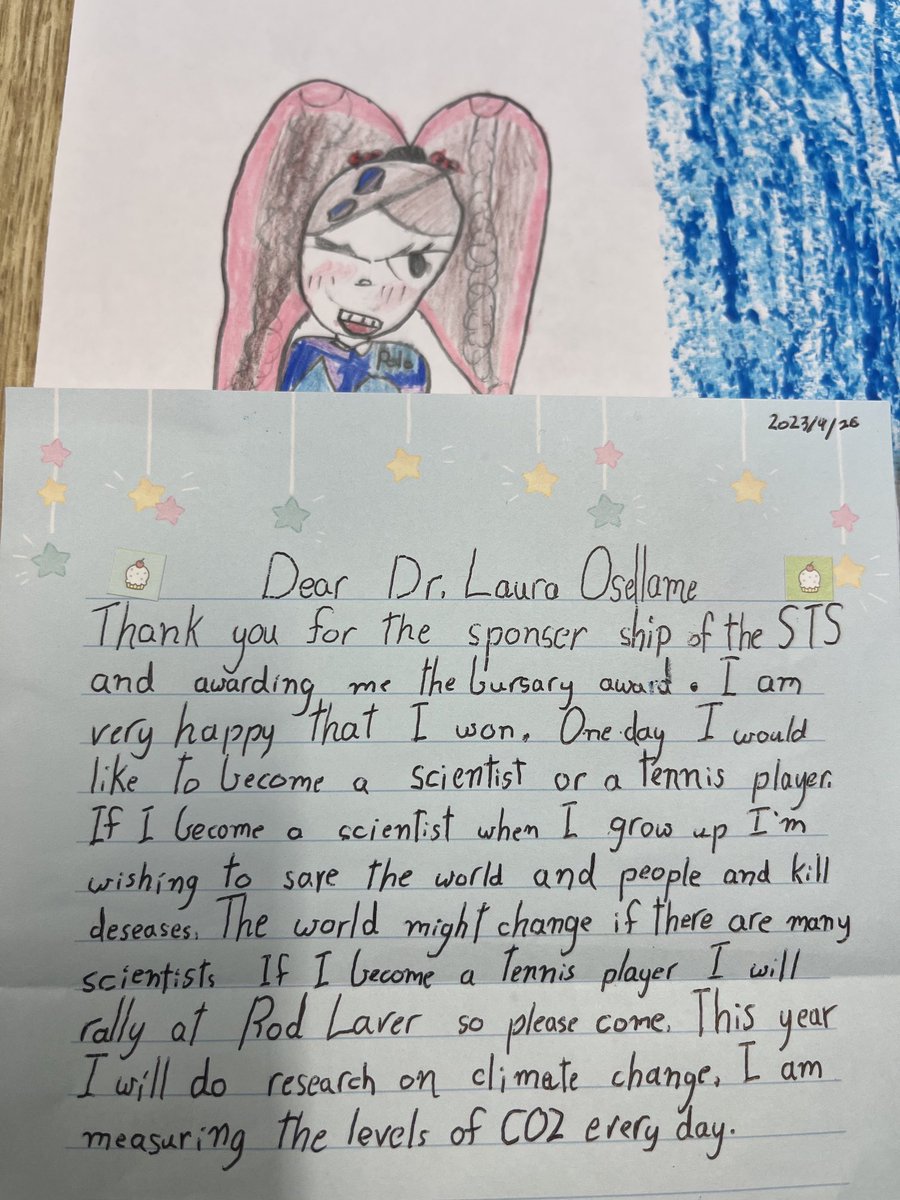 2023/4/26
Dear Dr. Laura Osellame
Thank you for the sponser ship of the STS
and awarding me the bursary award. I am
very happy that I won. One day I would
like to become a scientist or a tennis player.
If I become a scientist when I grow up I'm
wishing to save the world and people and kill
deseases. The world might change if there are many
scientists If I become a tennis player I will
rally at Rod Laver so please come. This year
I will do research on climate change. I am
measuring the levels of CO2 every day.